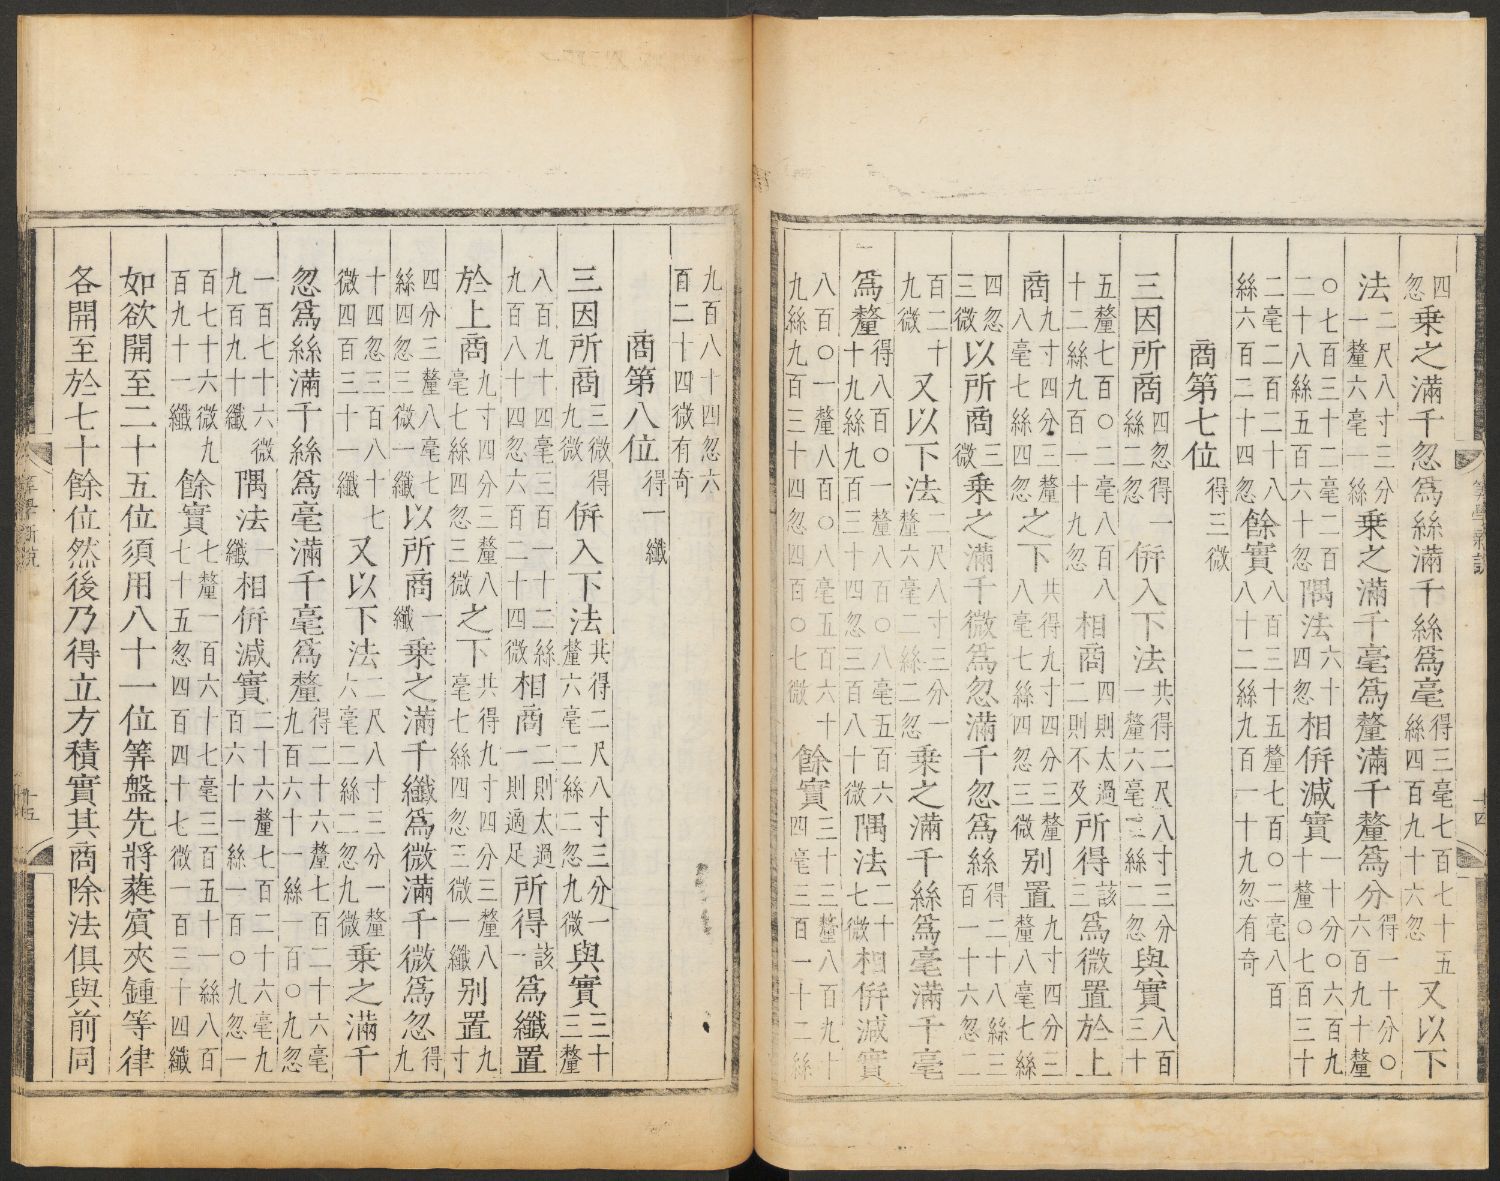 筭學新說
十四
四忽乘之滿千忽爲絲滿千絲爲毫得三毫七百七十五絲四百九十六忽又以下
法二尺八寸三分一釐六毫一絲乘之滿千毫爲釐滿千釐爲分得一十分〇六百九十釐
〇七百三十二毫一百二十八絲五百六十忽隅法六十四忽相併減實一十分〇六百九十釐〇七百三十
二毫二百二十八絲六百二十四忽餘實八百三十五釐七百〇二毫八百八十二絲九百一十九忽有奇
商第七位得三微
三因所商四忽得一絲二忽併入下法共得二尺八寸三分一釐六毫二絲二忽與實八百三十
五釐七百〇二毫八百八十二絲九百一十九忽相商四則太過二則不及所得該三爲微置於上
商九寸四分三釐八毫七絲四忽之下共得九寸四分三釐八毫七絲四忽三微别置九寸四分三釐八毫七絲
四忽三微以所商三微乘之滿千微爲忽滿千忽爲絲得二十八絲三百一十六忽二
百二十九微又以下法二尺八寸三分一釐六毫二絲二忽乘之滿千絲爲毫滿千毫
爲釐得八百〇一釐八百〇八毫五百六十九絲九百三十四忽三百八十微隅法二十七微相併減實
八百〇一釐八百〇八毫五百六十九絲九百三十四忽四百〇七微餘實三十三釐八百九十四毫三百一十二絲
九百八十四忽六百二十四微有奇
商第八位得一纖
三因所商三微得九微併入下法共得二尺八寸三分一釐六毫二絲二忽九微與實三十三釐
八百九十四毫三百一十二絲九百八十四忽六百二十四微相商二則太過一則適足所得該一爲纖置
於上商九寸四分三釐八毫七絲四忽三微之下共得九寸四分三釐八毫七絲四忽三微一纖别置九寸
四分三釐八毫七絲四忽三微一纖以所商一纖乘之滿千纖爲微滿千微爲忽得九
十四忽三百八十七微四百三十一纖又以下法二尺八寸三分一釐六毫二絲二忽九微乘之滿千
忽爲絲滿千絲爲毫滿千毫爲釐得二十六釐七百二十六毫九百六十一絲一百〇九忽
一百七十六微九百九十纖隅法一纖相併減實二十六釐七百二十六毫九百六十一絲一百〇九忽一
百七十六微九百九十一纖餘實七釐一百六十七毫三百五十一絲八百七十五忽四百四十七微一百三十四纖
如欲開至二十五位須用八十一位筭盤先將蕤賓夾鍾等律
各開至於七十餘位然後乃得立方積實其商除法俱與前同
筭學新說
十五